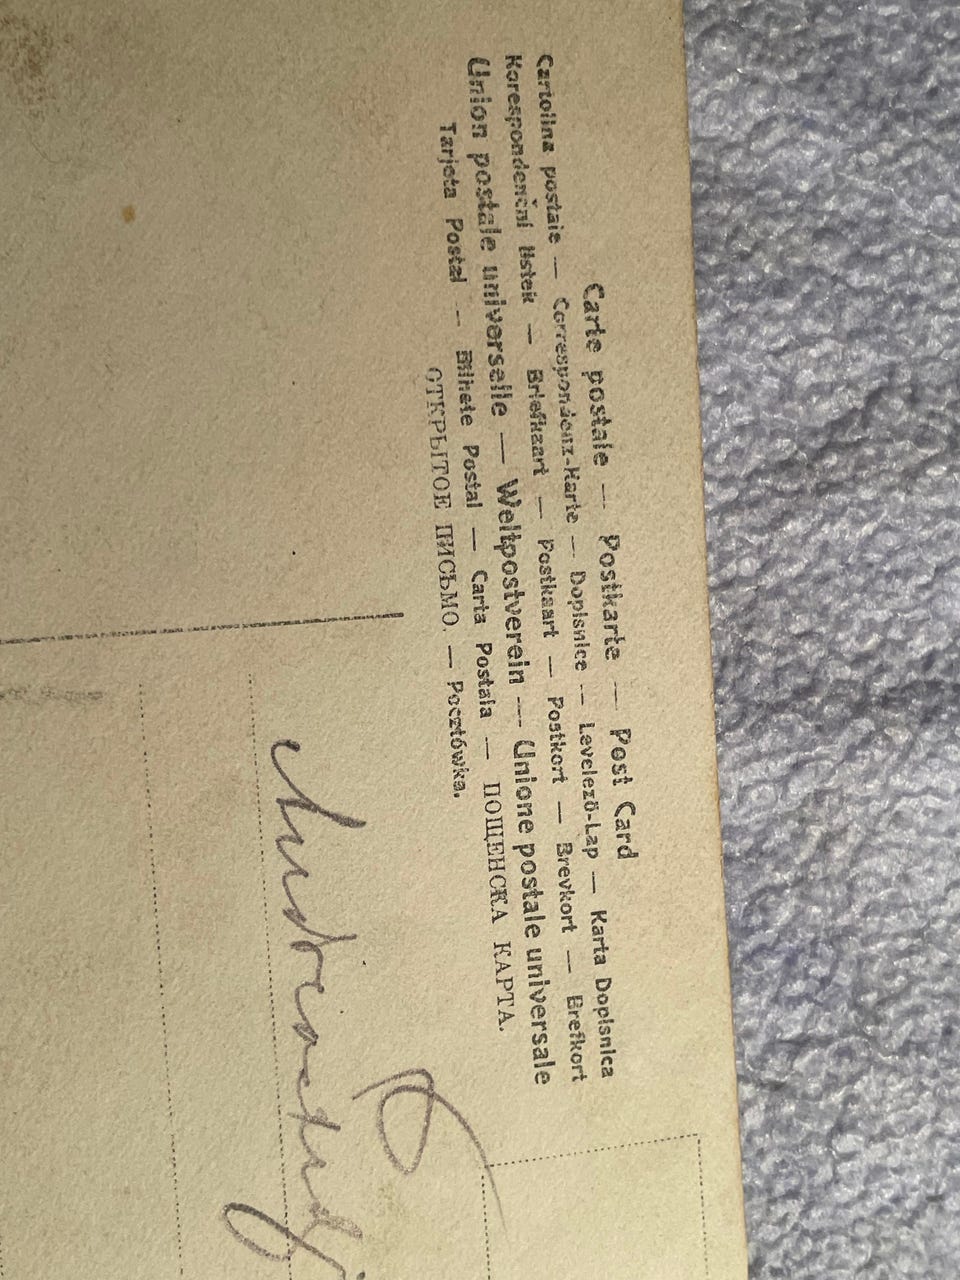 Carte postale — Postkarte — Post Card
Cartolina postale — Correspondenz-Karte — Dopisnice — Levelező-Lap — Karta Dopisnica
Korespondenční lístek — Briefkaart — Postkaart — Postkort — Brevkort — Brefkort
Union postale universelle — Weltpostverein — Unione postale universale
Tarjeta Postal — Bilhete Postal — Carta Postala — ПОЩЕНСКА КАРТА.
ОТКРЫТОЕ ПИСЬМО. — Pocztówka.